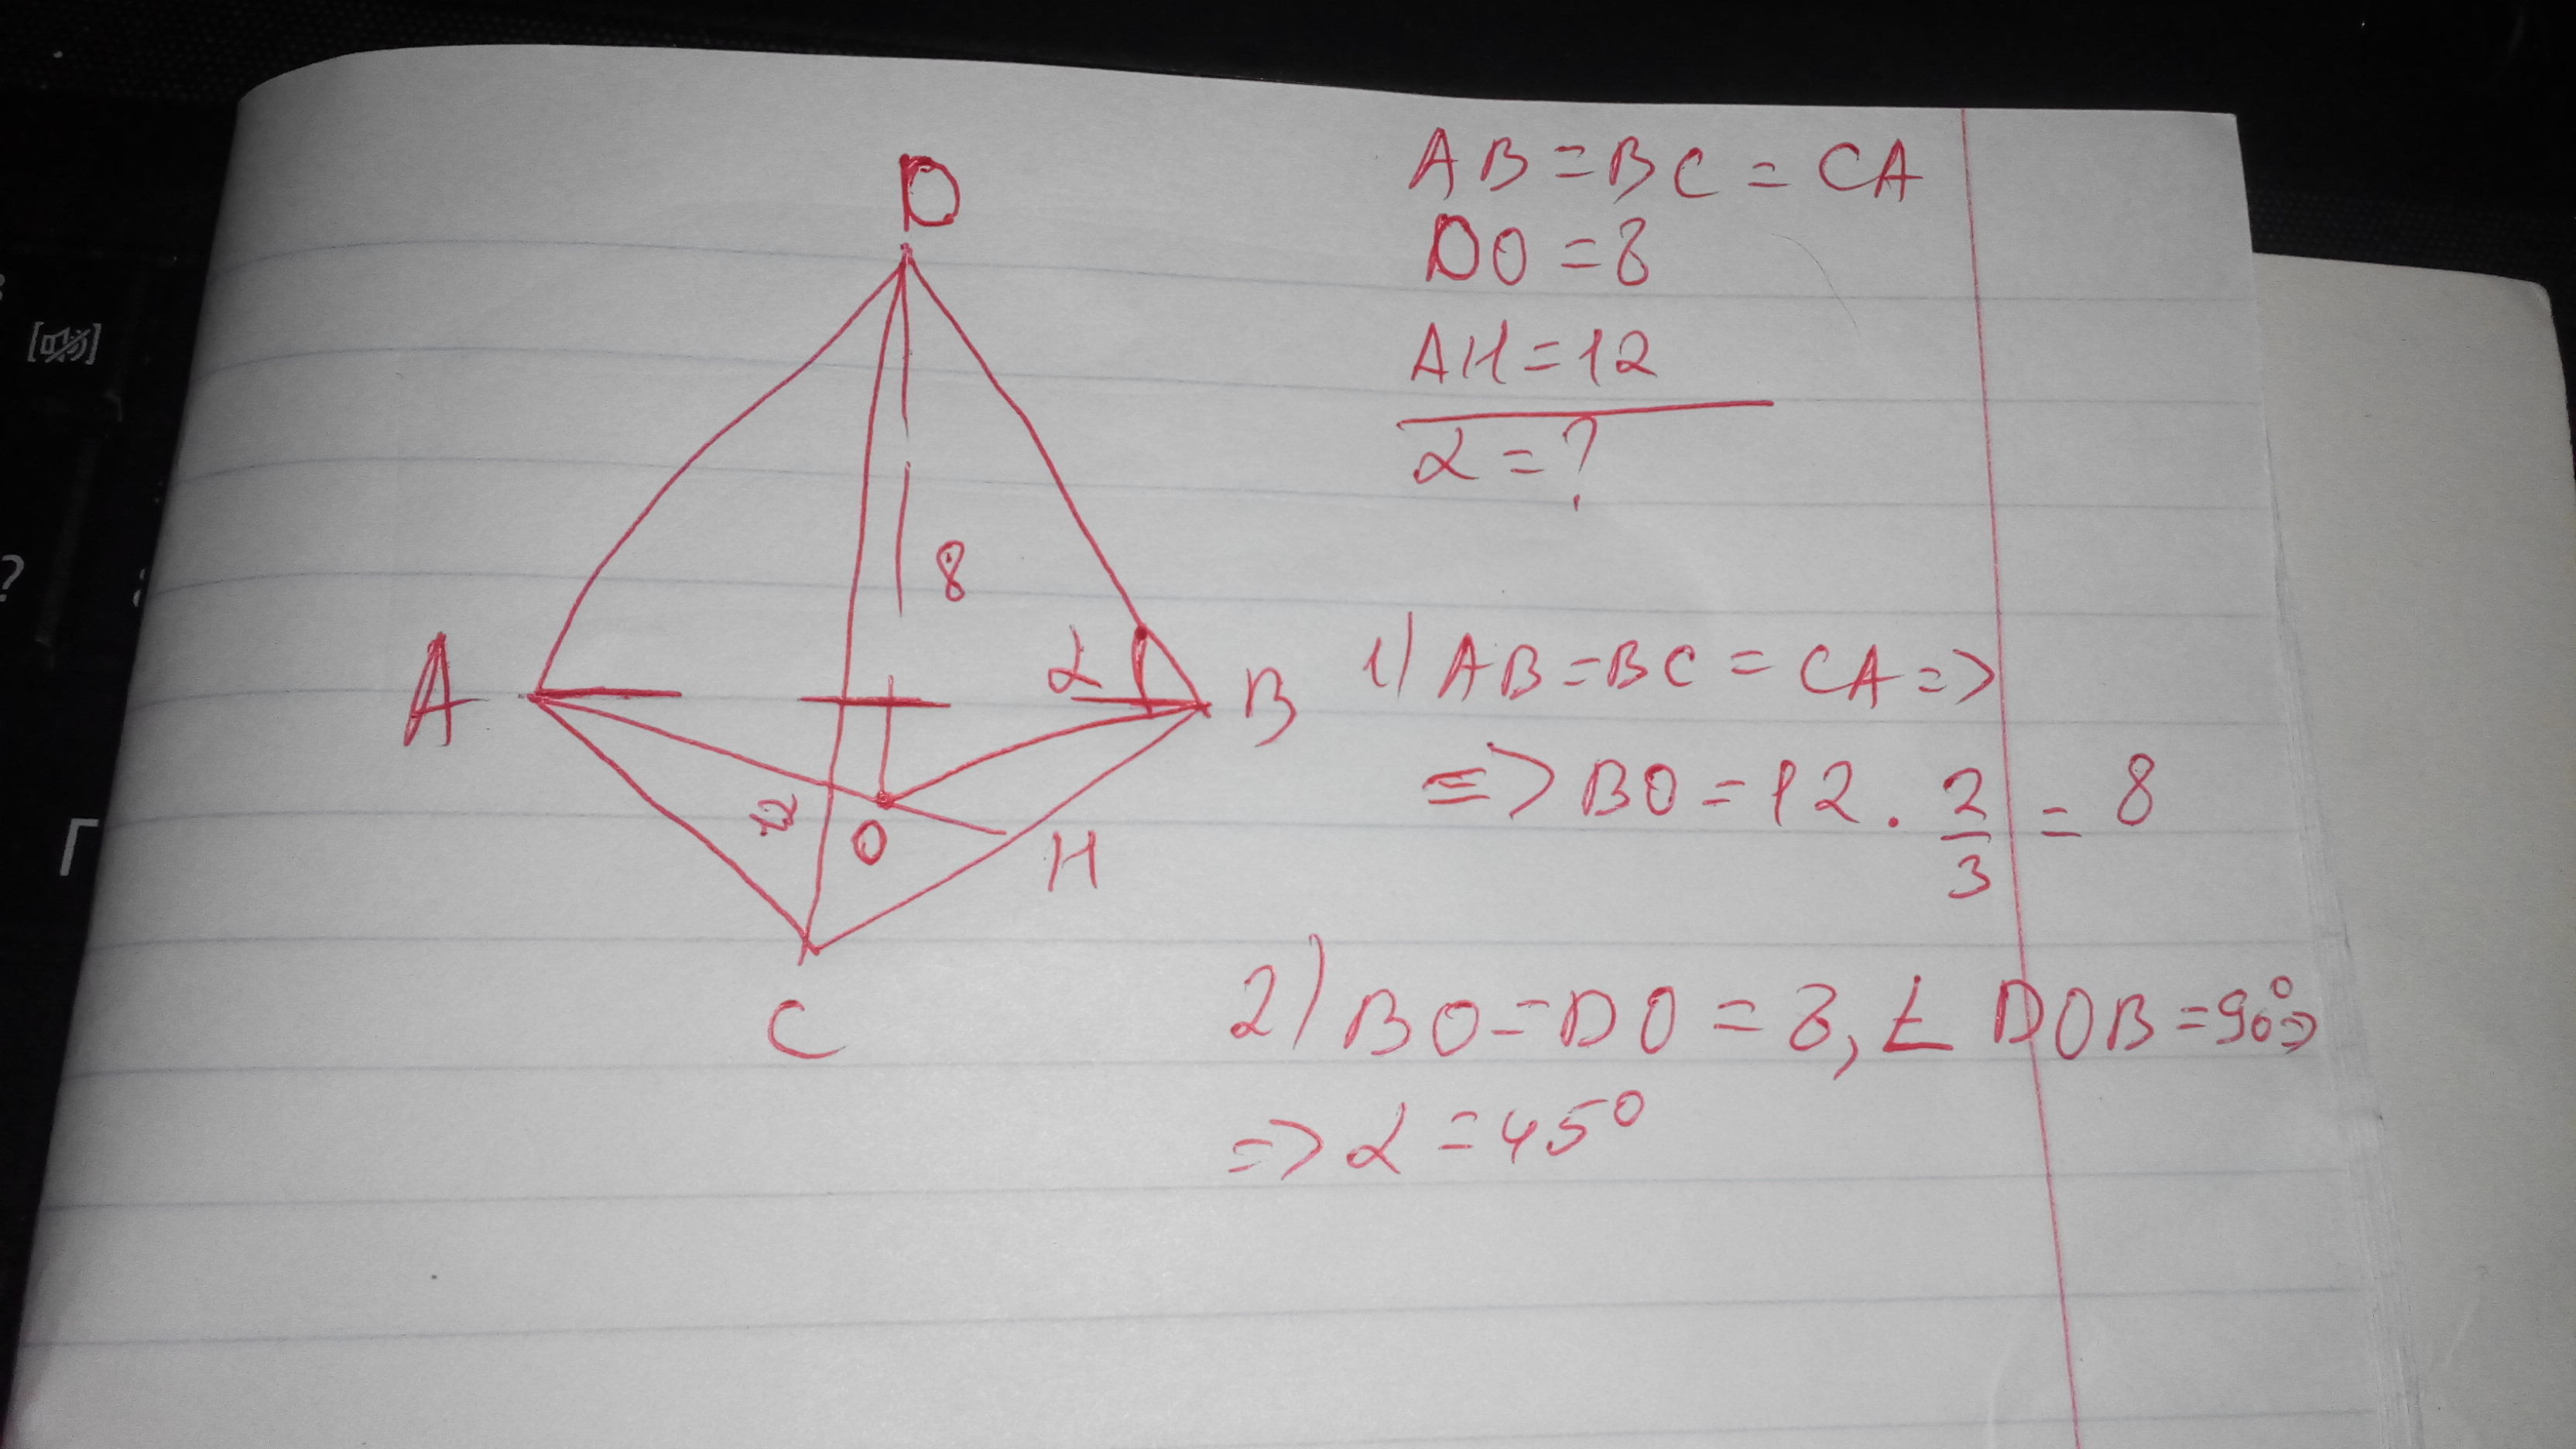 D
8
A
α
B
12
O
H
C
AB=BC=CA
DO=8
AH=12
α=?
1) AB=BC=CA=>
=> BO=12·2/3=8
2) BO=DO=8, ∠DOB=90°=>
=> α=45°
?
Г